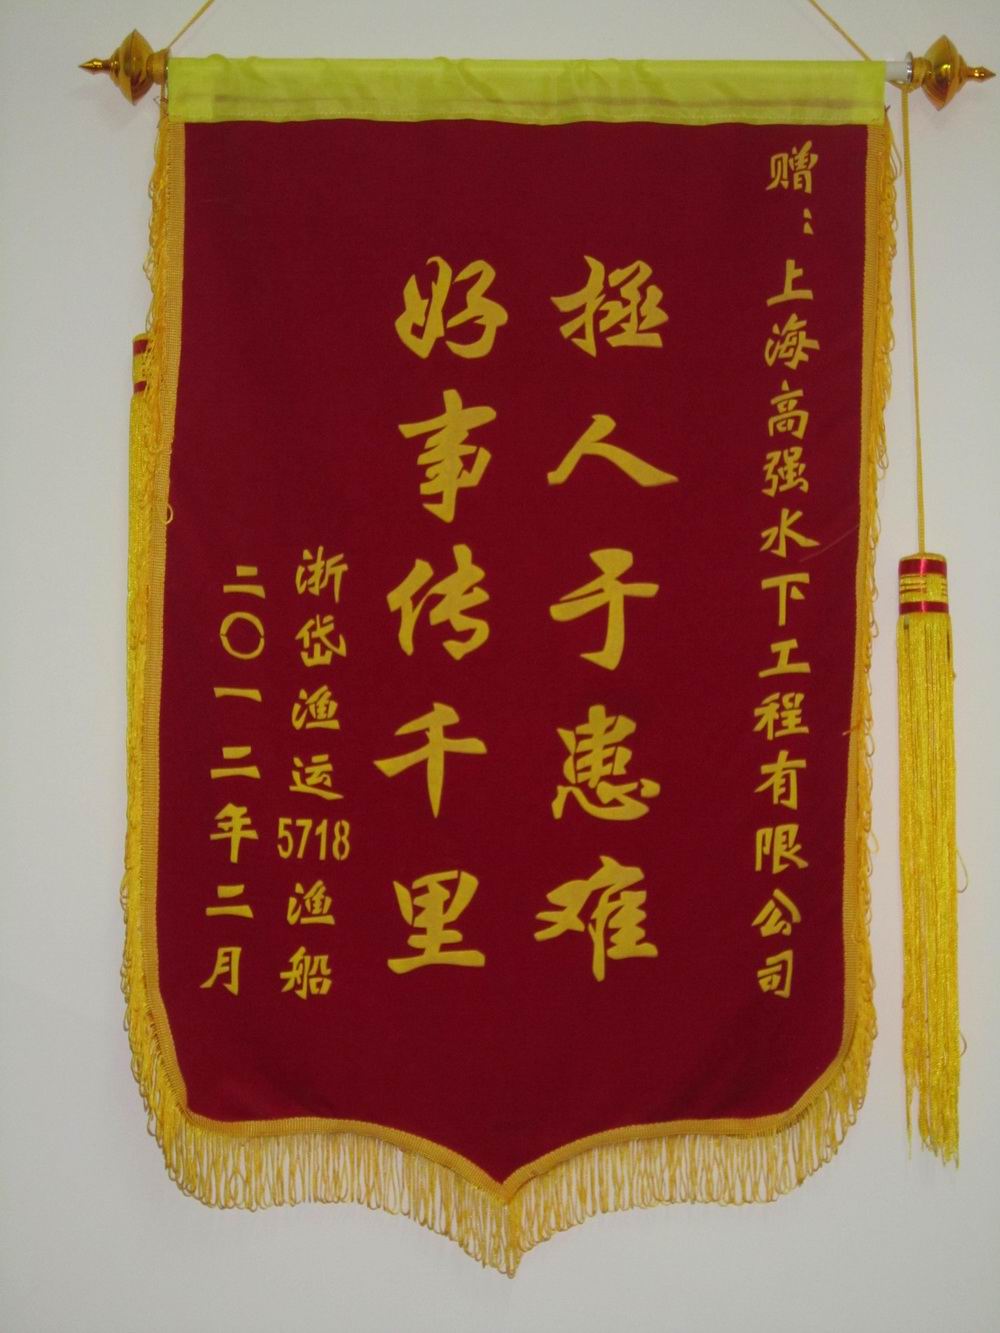 赠：上海高强水下工程有限公司
拯人于患难
好事传千里
浙岱渔运5718渔船
二〇一二年二月